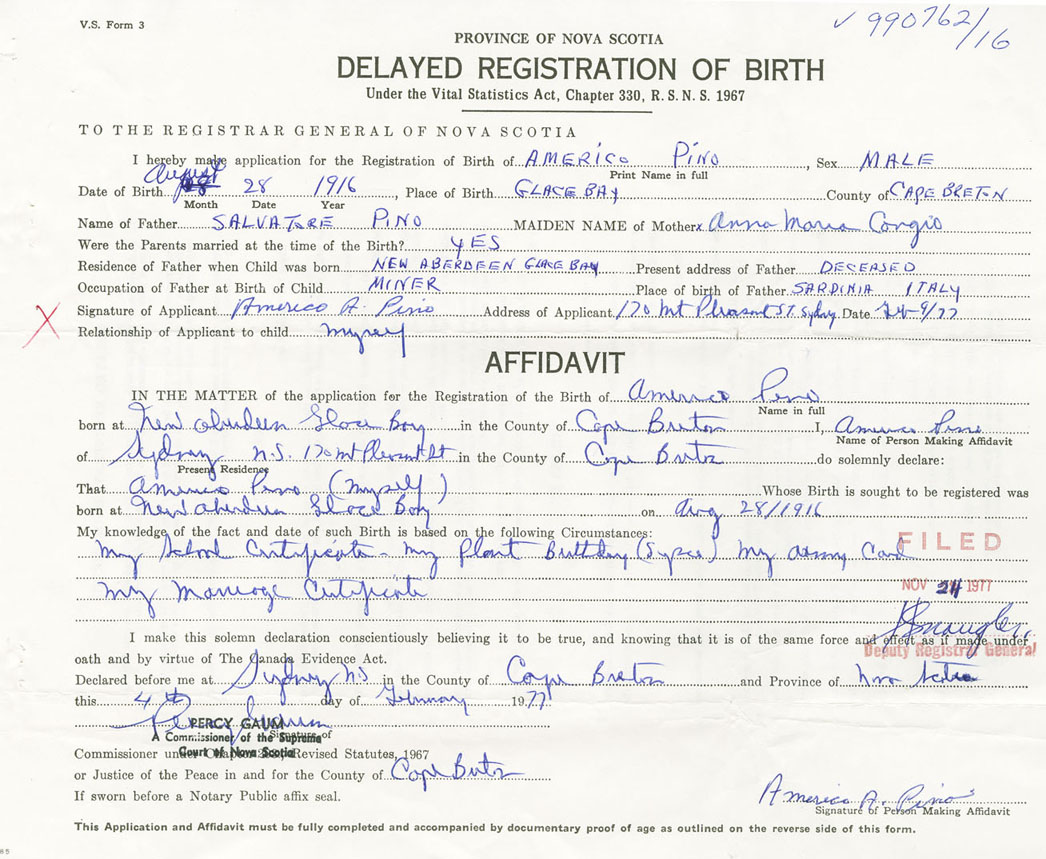 V.S. Form 3
✓ 990762/16
PROVINCE OF NOVA SCOTIA
DELAYED REGISTRATION OF BIRTH
Under the Vital Statistics Act, Chapter 330, R.S.N.S. 1967
TO THE REGISTRAR GENERAL OF NOVA SCOTIA
I hereby make application for the Registration of Birth of AMERICO PINO, Sex MALE
Print Name in full
August
Date of Birth 28 1916, Place of Birth GLACE BAY County of CAPE BRETON
Month Date Year
Name of Father SALVATORE PINO MAIDEN NAME of Mother x Anna Maria Congio
Were the Parents married at the time of the Birth? YES
Residence of Father when Child was born NEW ABERDEEN GLACE BAY Present address of Father DECEASED
Occupation of Father at Birth of Child MINER Place of birth of Father SARDINIA ITALY
X Signature of Applicant Americo A. Pino Address of Applicant 170 Mt Pleasant ST. Sydney Date Feb 9/77
Relationship of Applicant to child myself
AFFIDAVIT
IN THE MATTER of the application for the Registration of the Birth of Americo Pino
Name in full
born at New Aberdeen Glace Bay in the County of Cape Breton I, Americo Pino
Name of Person Making Affidavit
of Sydney N.S. 170 Mt Pleasant St in the County of Cape Breton do solemnly declare:
Present Residence
That Americo Pino (myself) Whose Birth is sought to be registered was
born at New Aberdeen Glace Bay on Aug 28/1916
My knowledge of the fact and date of such Birth is based on the following Circumstances:
My School Certificate - My plant Birthday (Sysco) My army Card
FILED
My Marriage Certificate
NOV 24 1977
I make this solemn declaration conscientiously believing it to be true, and knowing that it is of the same force and effect as if made under
Deputy Registrar General
oath and by virtue of The Canada Evidence Act.
Declared before me at Sydney NS in the County of Cape Breton and Province of Nova Scotia
this 4th day of February 1977
PERCY GAUM
A Commissioner of the Supreme
Signature of
Court of Nova Scotia
Commissioner under Chapter Revised Statutes, 1967
or Justice of the Peace in and for the County of Cape Breton
If sworn before a Notary Public affix seal.
Americo A. Pino
Signature of Person Making Affidavit
This Application and Affidavit must be fully completed and accompanied by documentary proof of age as outlined on the reverse side of this form.
85